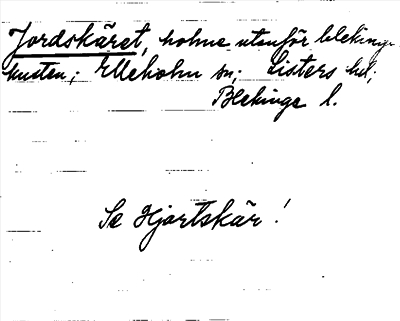 Jordskäret, holme utenför blekinge-
kusten; Elleholm sn; Listers hd;
Blekinge l.
Se Hjortskär!